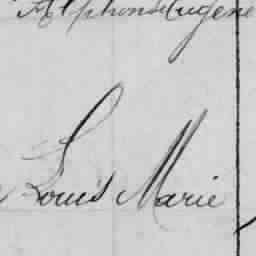 Alphonse Eugene
Louis Marie